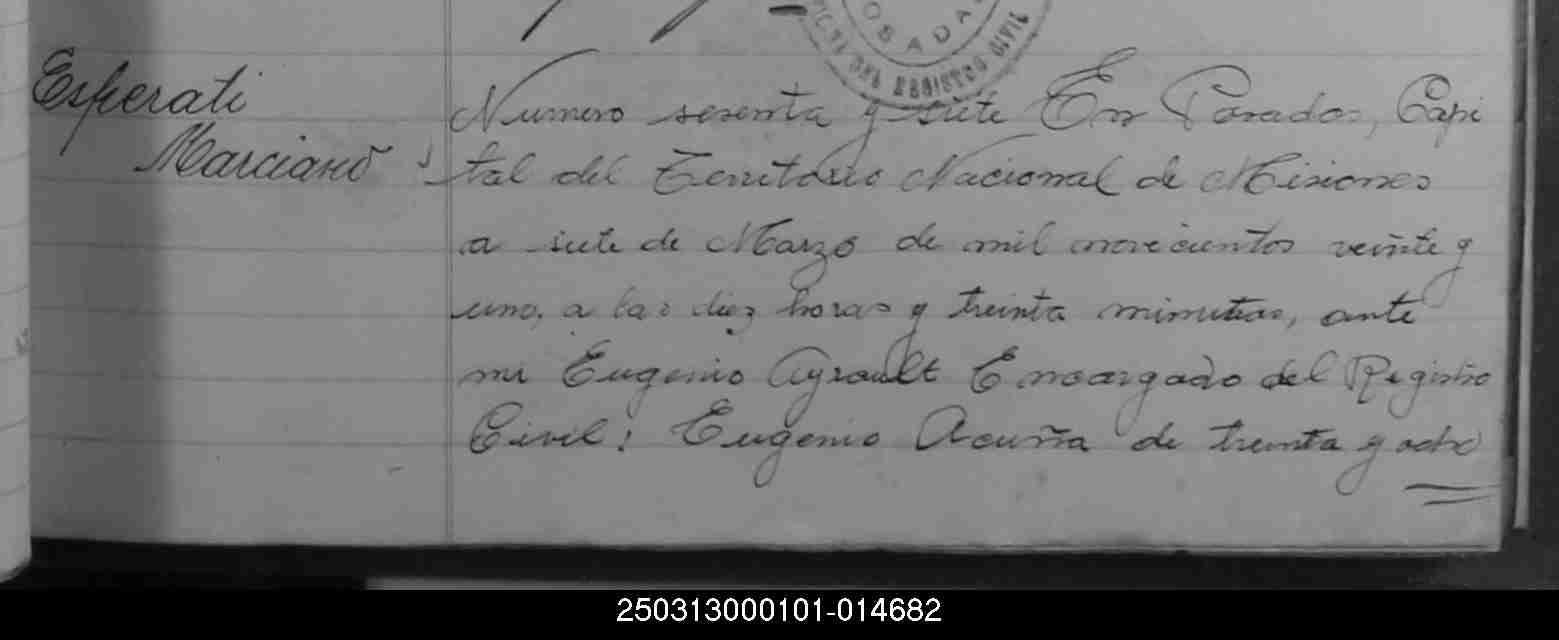 OSADA
DEL REGISTRO CIVIL
Esperati
Marciano
Numero sesenta y siete En Posadas, Capi
tal del Territorio Nacional de Misiones
a siete de Marzo de mil novecientos veinte y
uno, a las diez horas y treinta minutos, ante
mi Eugenio Ayrault Encargado del Registro
Civil: Eugenio Acuña de treinta y ocho
250313000101-014682